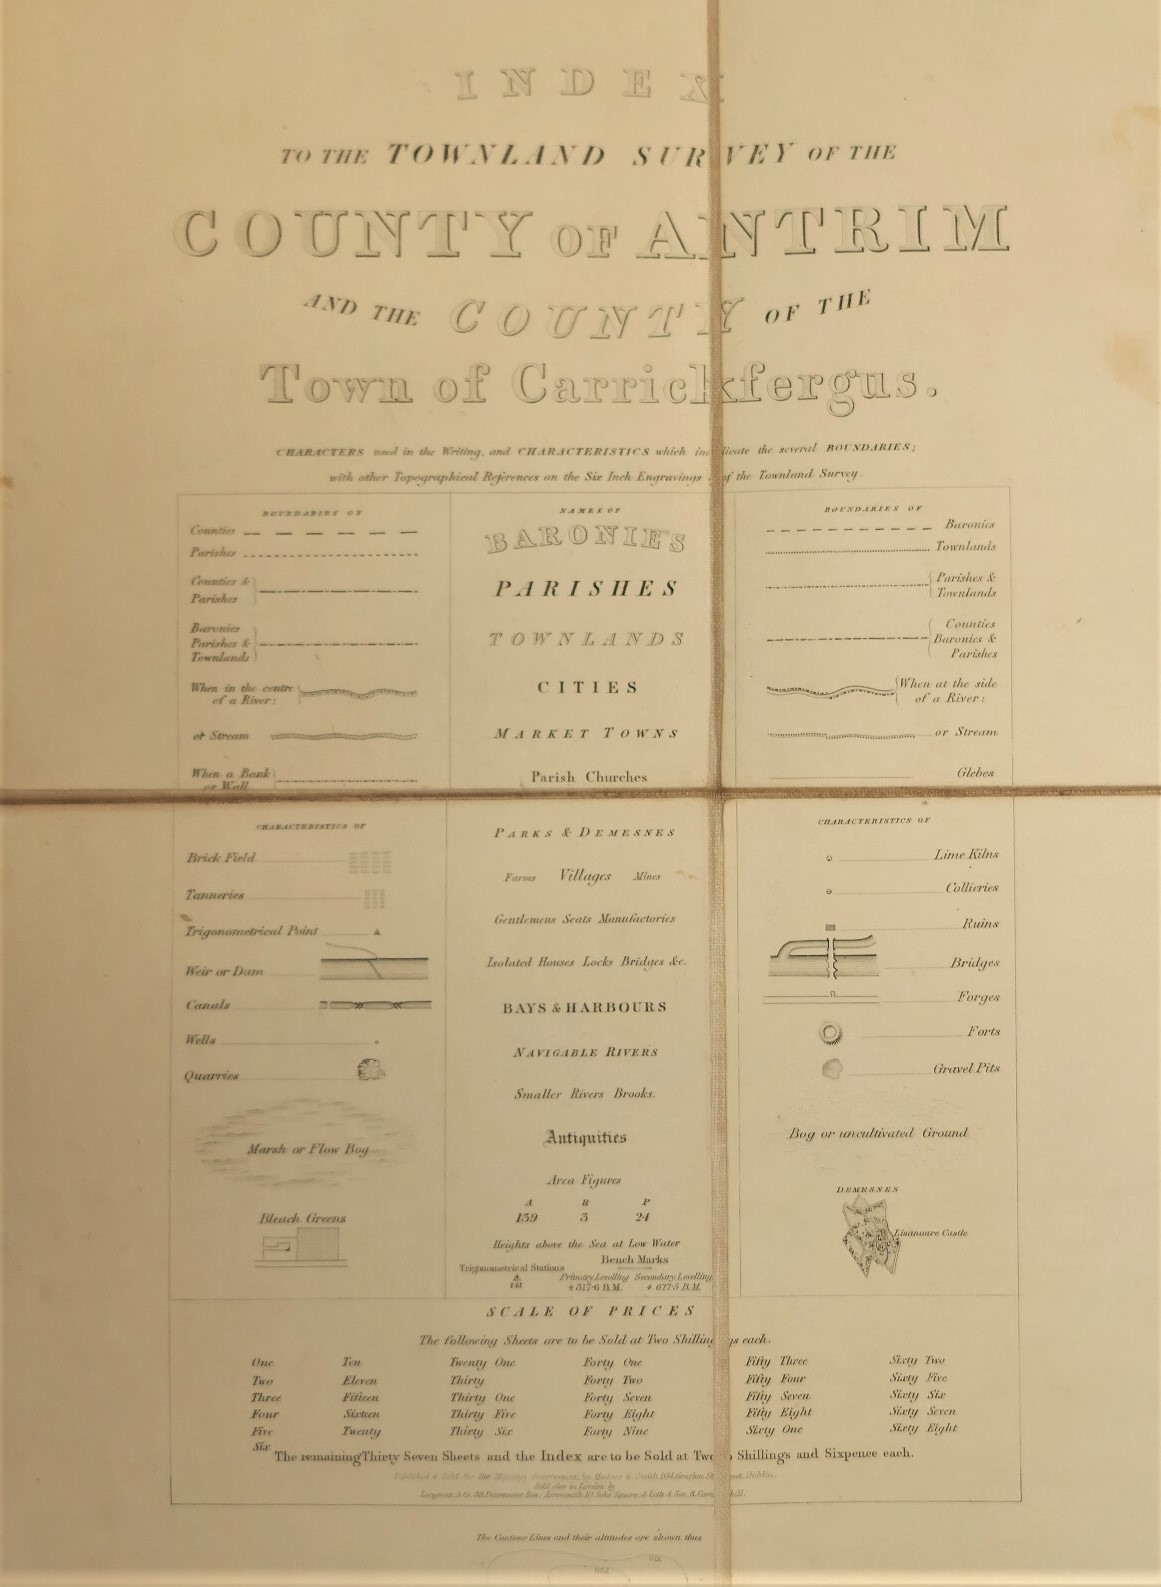 INDEX
TO THE TOWNLAND SURVEY OF THE
COUNTY OF ANTRIM
AND THE COUNTY OF THE
Town of Carrickfergus.
CHARACTERS used in the Writing, and CHARACTERISTICS which indicate the several BOUNDARIES;
with other Topographical References on the Six Inch Engravings of the Townland Survey.
BOUNDARIES OF
Counties
Parishes
Counties &
Parishes
Baronies
Parishes &
Townlands
When in the centre
of a River:
or Stream
When a Bank
or Wall
NAMES OF
BARONIES
PARISHES
TOWNLANDS
CITIES
MARKET TOWNS
Parish Churches
BOUNDARIES OF
Baronies
Townlands
Parishes &
Townlands
Counties
Baronies &
Parishes
When at the side
of a River:
or Stream
Glebes
CHARACTERISTICS OF
Brick Field
Tanneries
Trigonometrical Point
Weir or Dam
Canals
Wells
Quarries
Marsh or Flow Bog
Bleach Greens
PARKS & DEMESNES
Farms Villages Mines
Gentlemens Seats Manufactories
Isolated Houses Locks Bridges &c.
BAYS & HARBOURS
NAVIGABLE RIVERS
Smaller Rivers Brooks.
Antiquities
Area Figures
A R P
139 3 24
Heights above the Sea at Low Water
Trigonometrical Stations
Bench Marks
Primary Levelling Secondary Levelling
B.M. B.M.
CHARACTERISTICS OF
Lime Kilns
Collieries
Ruins
Bridges
Forges
Forts
Gravel Pits
Bog or uncultivated Ground
DEMESNES
Lisanoure Castle
SCALE OF PRICES
The following Sheets are to be Sold at Two Shillings each.
One Ten Twenty One Forty One Fifty Three Sixty Two
Two Eleven Thirty Forty Two Fifty Four Sixty Five
Three Fifteen Thirty One Forty Seven Fifty Seven Sixty Six
Four Sixteen Thirty Five Forty Eight Fifty Eight Sixty Seven
Five Twenty Thirty Six Forty Nine Sixty One Sixty Eight
Six
The remaining Thirty Seven Sheets and the Index are to be Sold at Two Shillings and Sixpence each.
Published & Sold for Her Majestys Government, by Hodges & Smith, 104, Grafton Street, Dublin.
Sold also in London by
Longman & Co. 39, Paternoster Row, Arrowsmith 10 Soho Square, & Letts & Son, 8,
The Contour Lines and their altitudes are shown thus